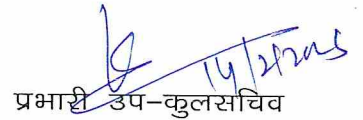 14/2/2025
प्रभारी उप-कुलसचिव